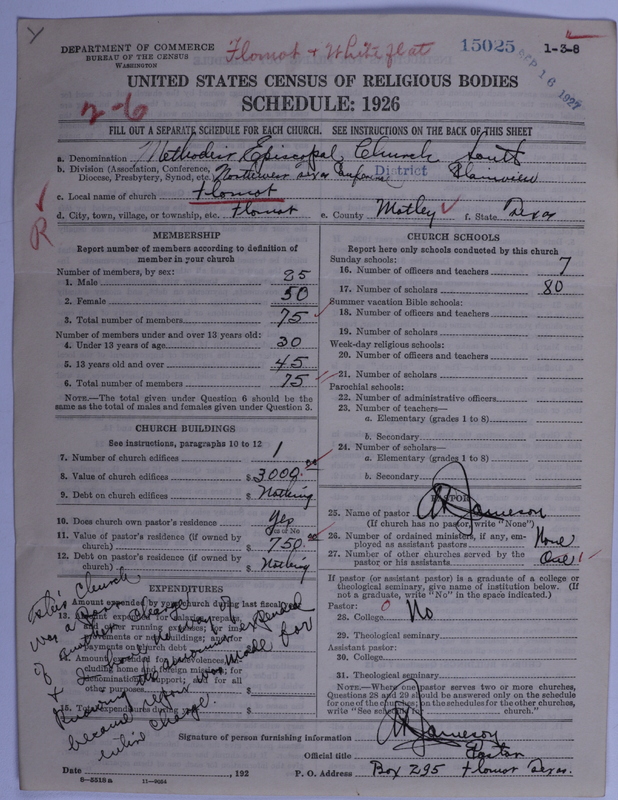 DEPARTMENT OF COMMERCE
BUREAU OF THE CENSUS
WASHINGTON
Flomot + Whiteflat
15025
SEP 16 1927
1-3-8
UNITED STATES CENSUS OF RELIGIOUS BODIES
SCHEDULE: 1926
2-6
FILL OUT A SEPARATE SCHEDULE FOR EACH CHURCH. SEE INSTRUCTIONS ON THE BACK OF THIS SHEET
a. Denomination Methodist Episcopal Church South
b. Division (Association, Conference, Diocese, Presbytery, Synod, etc.) Northwest Texas Conference District Plainview
c. Local name of church Flomot
R
d. City, town, village, or township, etc. Flomot e. County Motley f. State Texas
MEMBERSHIP
Report number of members according to definition of
member in your church
Number of members, by sex:
1. Male 25
2. Female 50
3. Total number of members 75
Number of members under and over 13 years old:
4. Under 13 years of age 30
5. 13 years old and over 45
6. Total number of members 75
NOTE.—The total given under Question 6 should be
same as the total of males and females given under Question 3.
CHURCH BUILDINGS
See instructions, paragraphs 10 to 12
7. Number of church edifices 1
8. Value of church edifices $3000.00
9. Debt on church edifices $ Nothing
10. Does church own pastor's residence Yes
Yes or No
11. Value of pastor's residence (if owned by
church) $ 750.00
12. Debt on pastor's residence (if owned by
church) $ Nothing
EXPENDITURES
Amount expended by your church during last fiscal
13. Amount expended for salaries, repairs,
and other running expenses; for im-
provements or new buildings; and for
payments on church debt
14. Amount expended for benevolences, in-
cluding home and foreign missions; for
denominational support; and for all
other purposes $
15. Total expenditures during year $
This church
was a Part
of another charge
+ I have no way of
Knowing the amount expended
because report was made for
entire charge.
Date , 192
8-5518a 11-9054
CHURCH SCHOOLS
Report here only schools conducted by this church
Sunday schools:
16. Number of officers and teachers 7
17. Number of scholars 80
Summer vacation Bible schools:
18. Number of officers and teachers
19. Number of scholars
Week-day religious schools:
20. Number of officers and teachers
21. Number of scholars
Parochial schools:
22. Number of administrative officers
23. Number of teachers—
a. Elementary (grades 1 to 8)
b. Secondary
24. Number of scholars—
a. Elementary (grades 1 to 8)
b. Secondary
PASTOR
25. Name of pastor Jameson
(If church has no pastor, write "None")
26. Number of ordained ministers, if any, em-
ployed as assistant pastors None
27. Number of other churches served by the
pastor or his assistants One
If pastor (or assistant pastor) is a graduate of a college or
theological seminary, give name of institution below. (If
not a graduate, write "No" in the space indicated.)
Pastor:
28. College No
29. Theological seminary
Assistant pastor:
30. College
31. Theological seminary
NOTE.—Where one pastor serves two or more churches,
Questions 28 and 29 should be answered only on the schedule
for one of the churches; on the schedules for the other churches,
write "See schedule for church."
Signature of person furnishing information Jameson
Official title Pastor
P. O. Address Box 295 Flomot Texas.